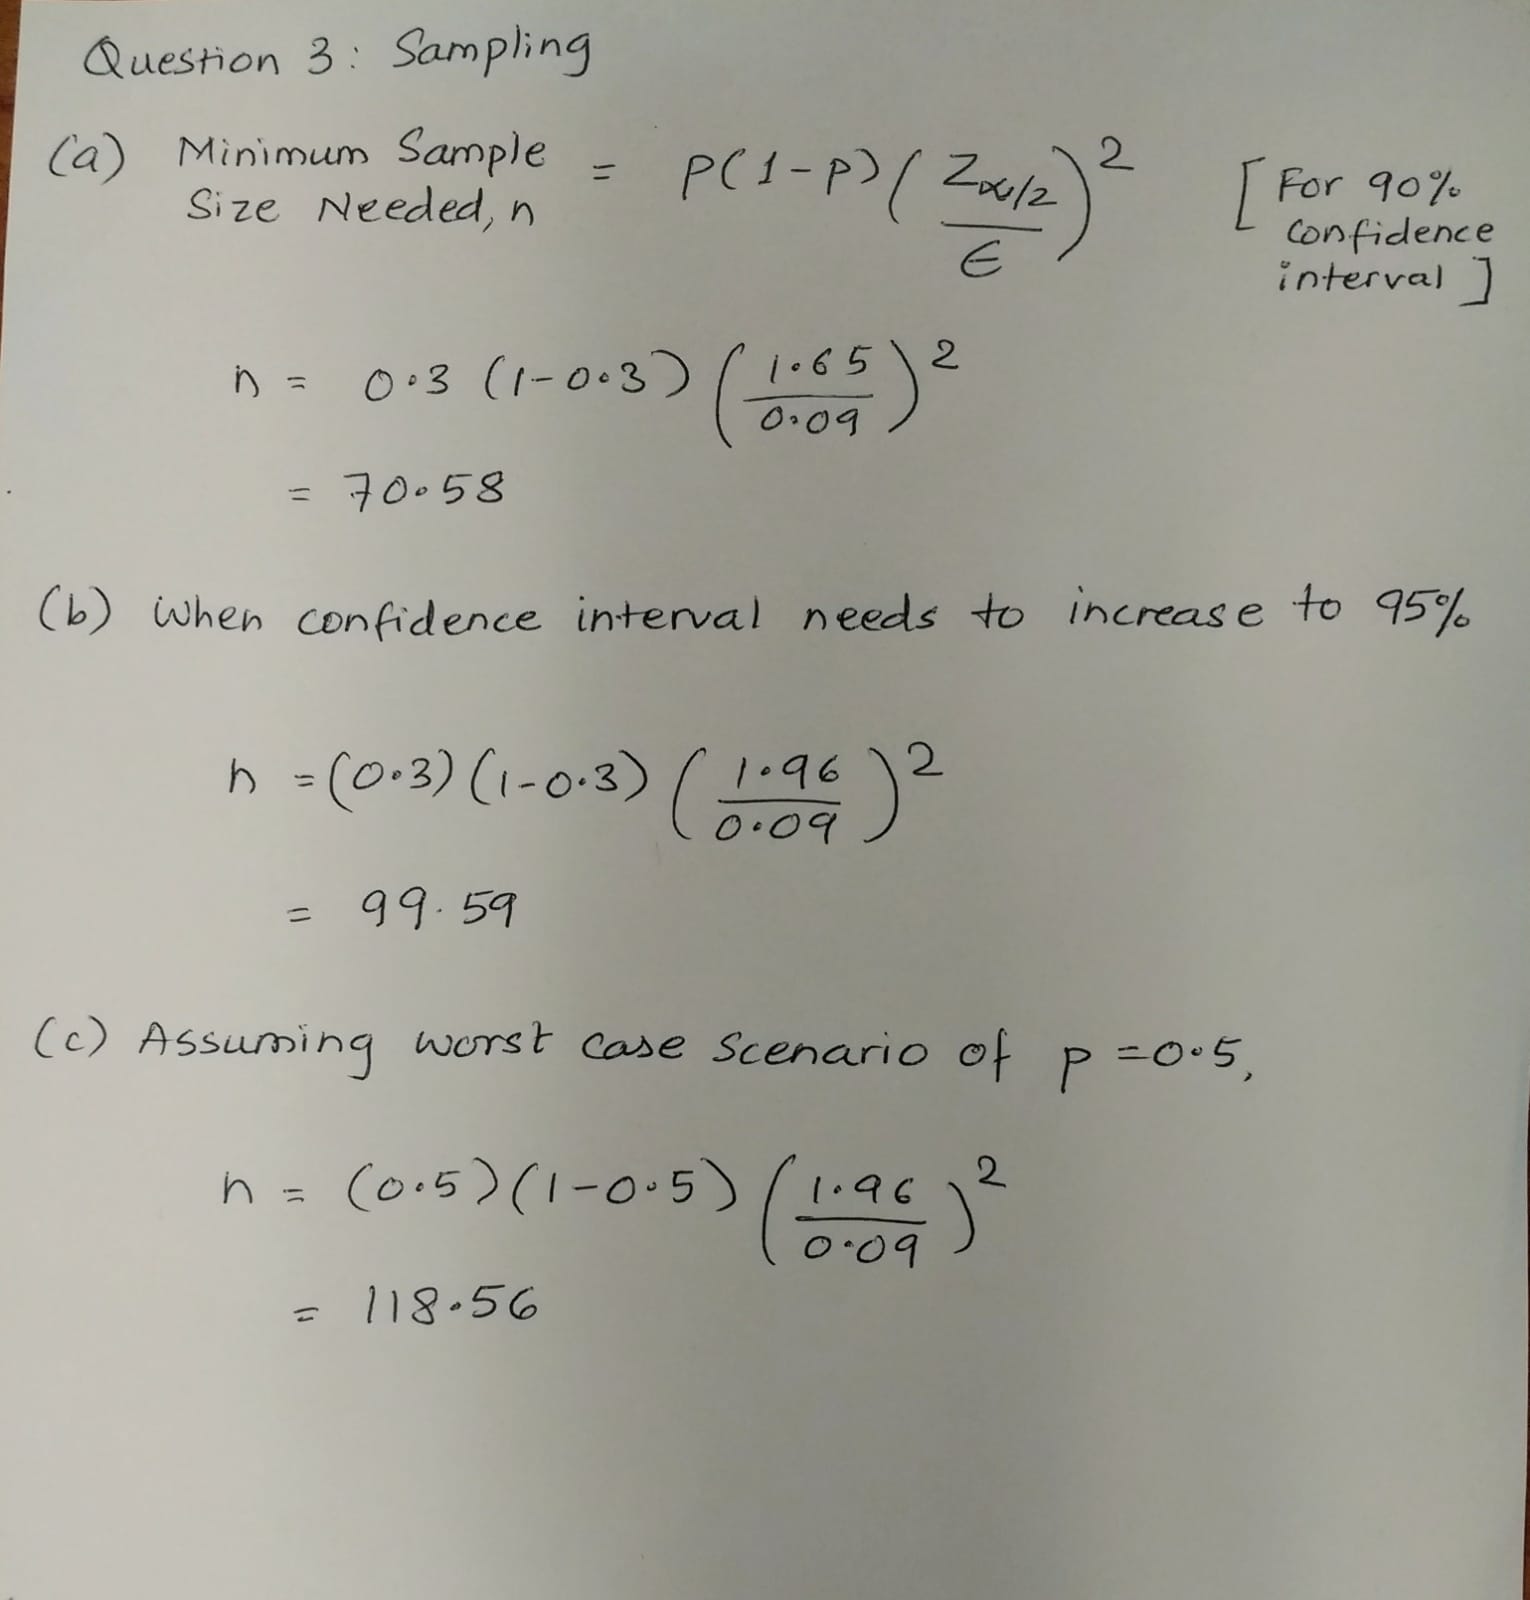 Question 3: Sampling
(a) Minimum Sample Size Needed, n = p(1-p)(Zα/2 / ∈)² [For 90% confidence interval]
n = 0.3 (1-0.3) (1.65 / 0.09)²
= 70.58
(b) when confidence interval needs to increase to 95%
n = (0.3)(1-0.3) (1.96 / 0.09)²
= 99.59
(c) Assuming worst case scenario of p=0.5,
n = (0.5)(1-0.5) (1.96 / 0.09)²
= 118.56